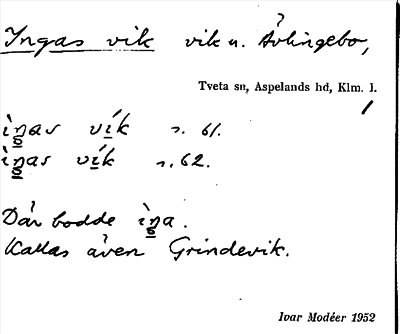 Ingas vik vik u. Ävlingebo,
Tveta sn, Aspelands hd, Klm. l.
/
ìŋas vík s. 61.
ìŋas vík s. 62.
Där bodde ìŋa.
Kallas även Grindevik.
Ivar Modéer 1952